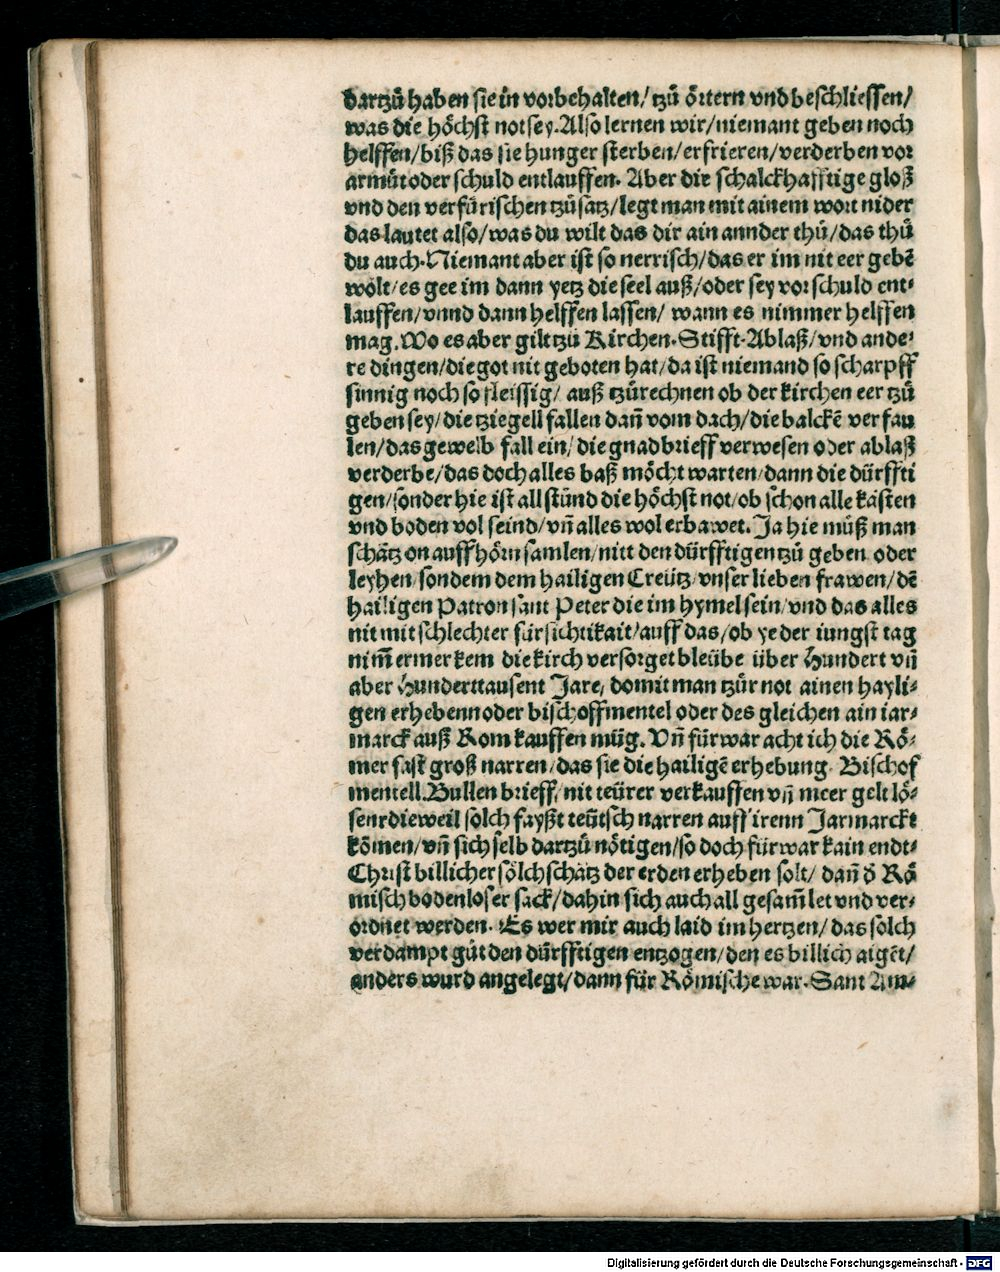 dartzů haben sie in vorbehalten/ tzů örtern vnd beschliessen/
was die höchst not sey. Also lernen wir/ niemant geben noch
helffen/ biß das sie hunger sterben/ erfrieren/ verderben vor
armůt oder schuld entlauffen. Aber die schalckhafftige gloß
vnd den verfürischen tzůsatz/ legt man mit ainem wort nider
das lautet also/ was du wilt das dir ain annder thů/ das thů
du auch. Niemant aber ist so nerrisch/ das er im nit eer gebē
wölt/ es gee im dann yetz die seel auß/ oder sey vor schuld ent-
lauffen/ vnnd dann helffen lassen/ wann es nimmer helffen
mag. Wo es aber gilt tzů Kirchen. Stifft. Ablaß/ vnd ande-
re dingen/ die got nit geboten hat/ da ist niemand so scharpff
sinnig noch so fleissig/ auß tzůrechnen ob der kirchen eer tzů
geben sey/ die tziegell fallen dañ vom dach/ die balckē verfau
len/ das gewelb fall ein/ die gnadbrieff verwesen oder ablaß
verderbe/ das doch alles baß möcht warten/ dann die dürffti
gen/ sonder hie ist all stünd die höchst not/ ob schon alle kästen
vnd boden vol seind/ vñ alles wol erbawet. Ja hie můß man
schätz on auffhörn samlen/ nitt den dürfftigen tzů geben oder
leyhen/ sondern dem hailigen Creütz/ vnser lieben frawen/ dē
hailigen Patron sant Peter die im hymel sein/ vnd das alles
nit mit schlechter fürsichtikait/ auff das/ ob ye der iungst tag
nim̃ermer kem die kirch versorget bleübe über Hundert vñ
aber Hunderttausent Jare/ domit man tzůr not ainen hayli-
gen erhebenn oder bischoffmentel oder des gleichen ain iar-
marck auß Rom kauffen müg. Vñ fürwar acht ich die Rö-
mer fast groß narren/ das sie die hailigē erhebung. Bischof
mentell. Bullen brieff/ nit teürer verkauffen vñ meer gelt lö-
senr dieweil solch fayßt teütsch narren auff irenn Jarmarckt
kōmen/ vñ sich selb dartzů nötigen/ so doch fürwar kain endt-
Christ billicher sölch schätz der erden erheben solt/ dañ d̄ Rö
misch bodenloser sack/ dahin sich auch all gesam̃let vnd ver-
ordnet werden. Es wer mir auch laid im hertzen/ das solch
verdampt gůt den dürfftigen entzogen/ den es billich aigēt/
anders wurd angelegt/ dann für Römische war. Sant Am-
Digitalisierung gefördert durch die Deutsche Forschungsgemeinschaft - DFG